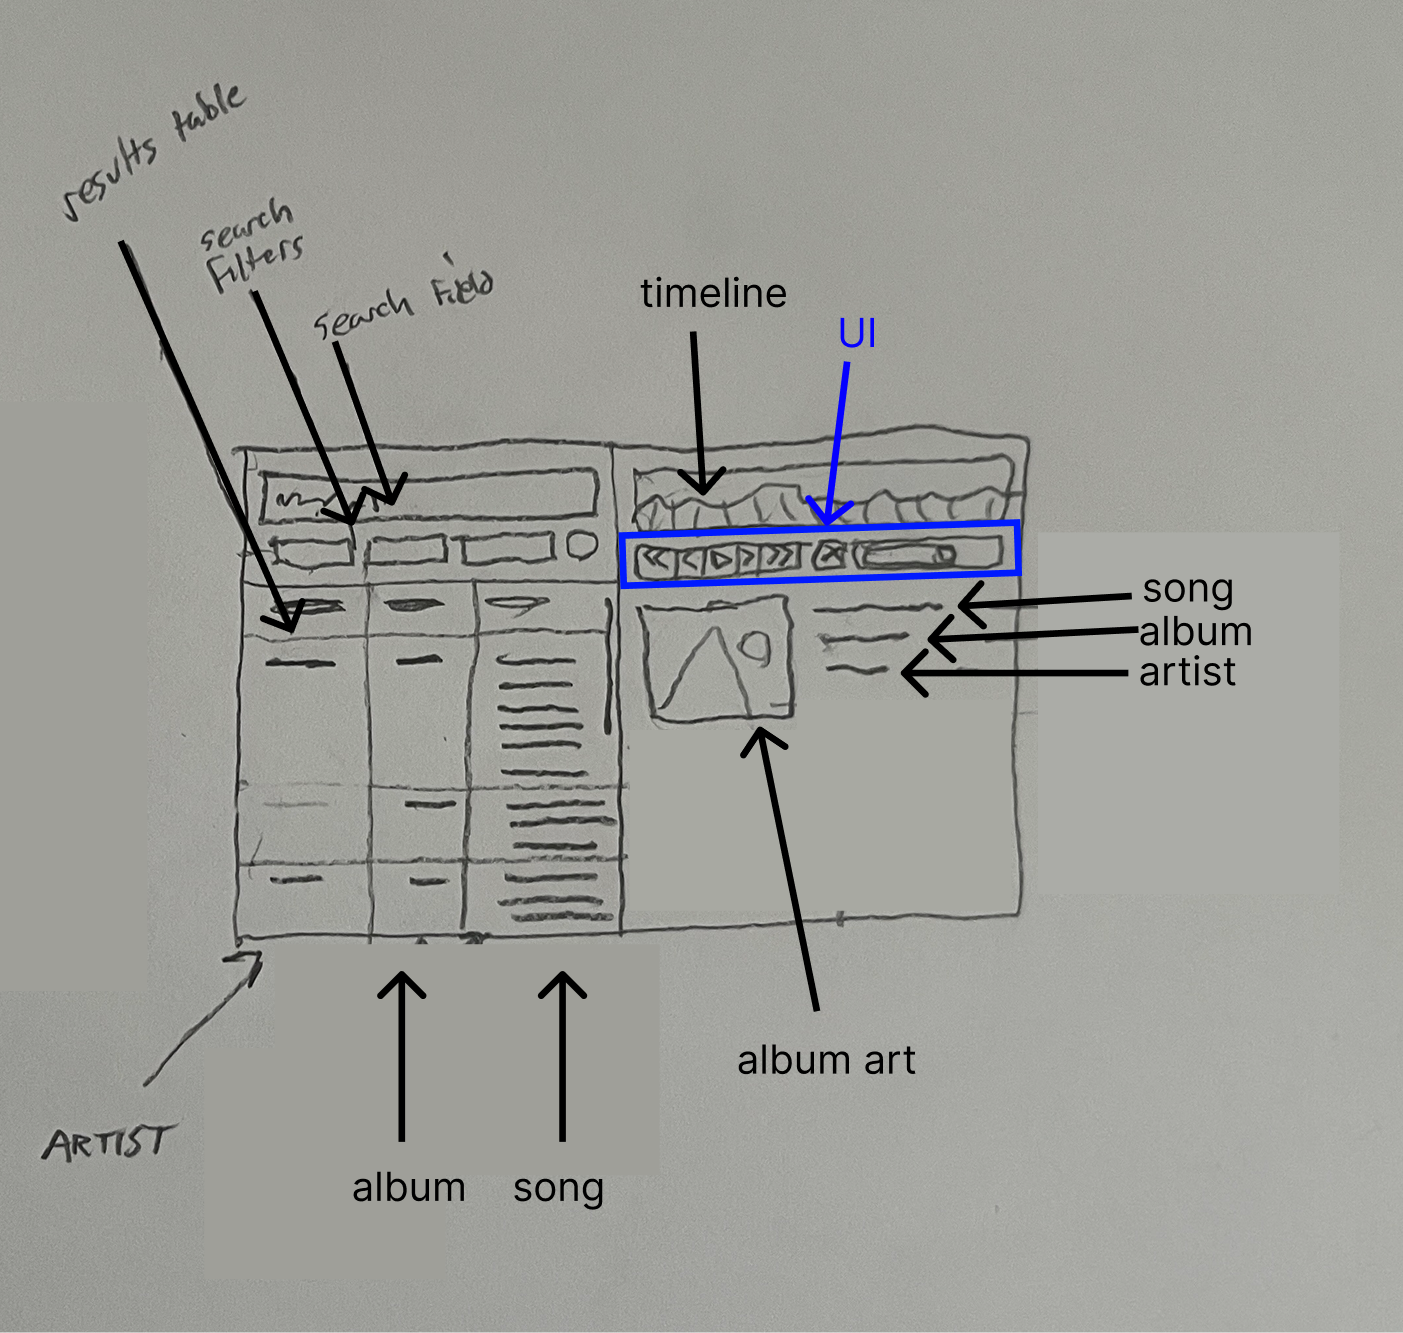 results table
search
Filters
search Field
timeline
UI
song
album
artist
album art
ARTIST
album
song